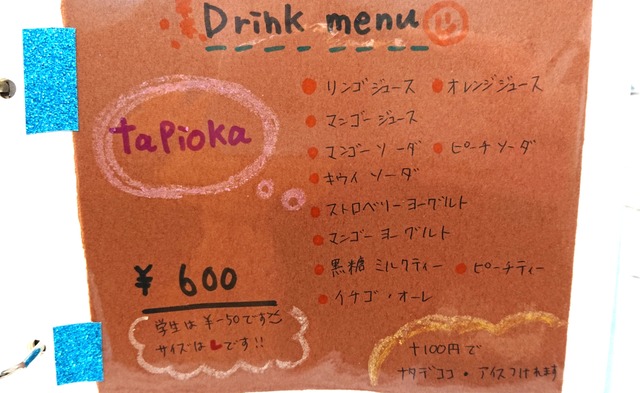 Drink menu
tapioka
リンゴジュース
オレンジジュース
マンゴージュース
マンゴーソーダ
ピーチソーダ
キウイソーダ
ストロベリーヨーグルト
マンゴーヨーグルト
黒糖ミルクティー
ピーチティー
イチゴ・オーレ
¥600
学生は¥-50です
サイズはLです!!
+100円で
ナタデココ・アイスつけれます